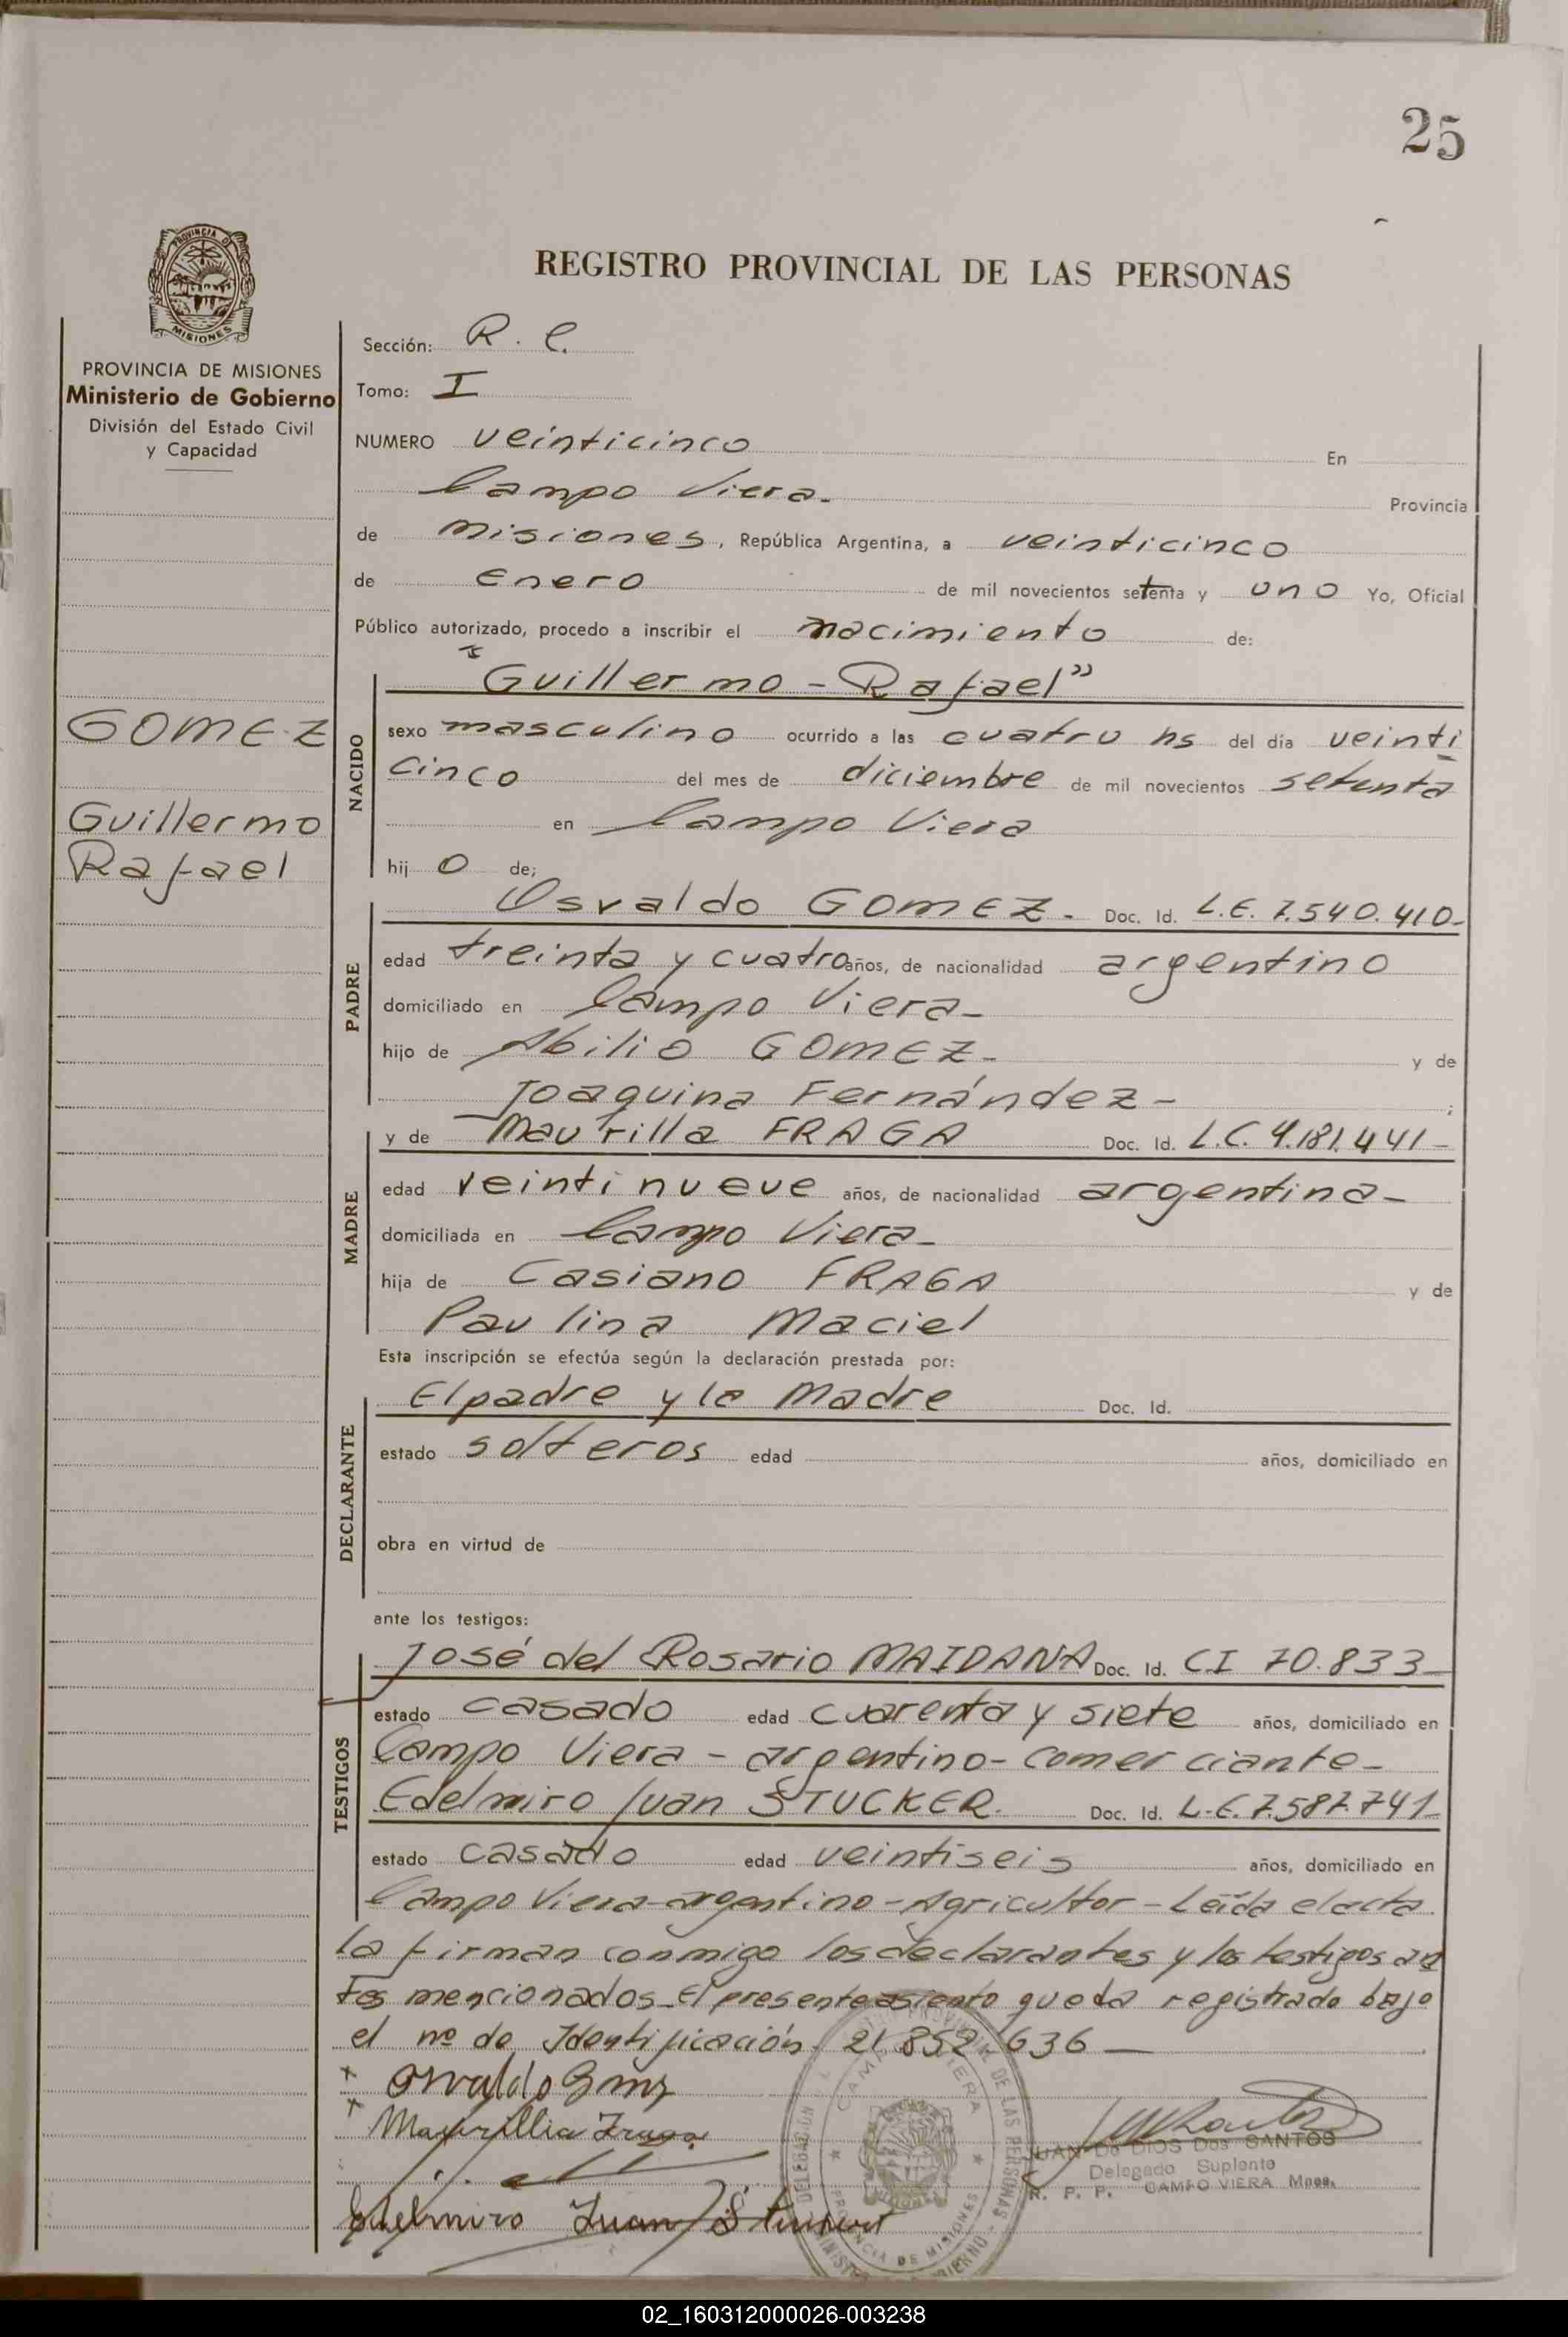 25
PROVINCIA DE
MISIONES
REGISTRO PROVINCIAL DE LAS PERSONAS
PROVINCIA DE MISIONES
Ministerio de Gobierno
División del Estado Civil
y Capacidad
GOMEZ
Guillermo
Rafael
Sección: R. C.
Tomo: I
NUMERO veinticinco En
Campo Viera- Provincia
de Misiones, República Argentina, a veinticinco
de Enero de mil novecientos setenta y uno Yo, Oficial
Público autorizado, procedo a inscribir el nacimiento de:
"Guillermo - Rafael"
NACIDO
sexo masculino ocurrido a las cuatro hs del día veinti
cinco del mes de diciembre de mil novecientos setenta
en Campo Viera
hij o de;
Osvaldo GOMEZ- Doc. Id. L.E. 7.540.410-
PADRE
edad treinta y cuatro años, de nacionalidad argentino
domiciliado en Campo Viera-
hijo de Abilio GOMEZ- y de
Joaquina Fernández- ;
y de Maurilla FRAGA Doc. Id. L.C. 4.181.441-
MADRE
edad veintinueve años, de nacionalidad argentina-
domiciliada en Campo Viera-
hija de Casiano FRAGA y de
Paulina Maciel
Esta inscripción se efectúa según la declaración prestada por:
El padre y la Madre Doc. Id.
DECLARANTE
estado solteros edad años, domiciliado en
obra en virtud de
ante los testigos:
José del Rosario MAIDANA Doc. Id. CI 70.833-
TESTIGOS
estado casado edad cuarenta y siete años, domiciliado en
Campo Viera - argentino - comerciante-
Edelmiro Juan STUCKER. Doc. Id. L.E. 7.587.741-
estado casado edad veintiseis años, domiciliado en
Campo Viera-argentino-Agricultor-Leída elacta
la firman conmigo los declarantes y los testigos an
tes mencionados-El presente asiento queda registrado bajo
el nº de Identificación 21.852.636-
Osvaldo Gmz
Maurillia Fraga
Edelmiro Juan
JUAN De DIOS Dos SANTOS
Delegado Suplente
R. P. P. CAMPO VIERA Mnes.
CAMPO VIERA
PROVINCIA DE MISIONES
02_160312000026-003238